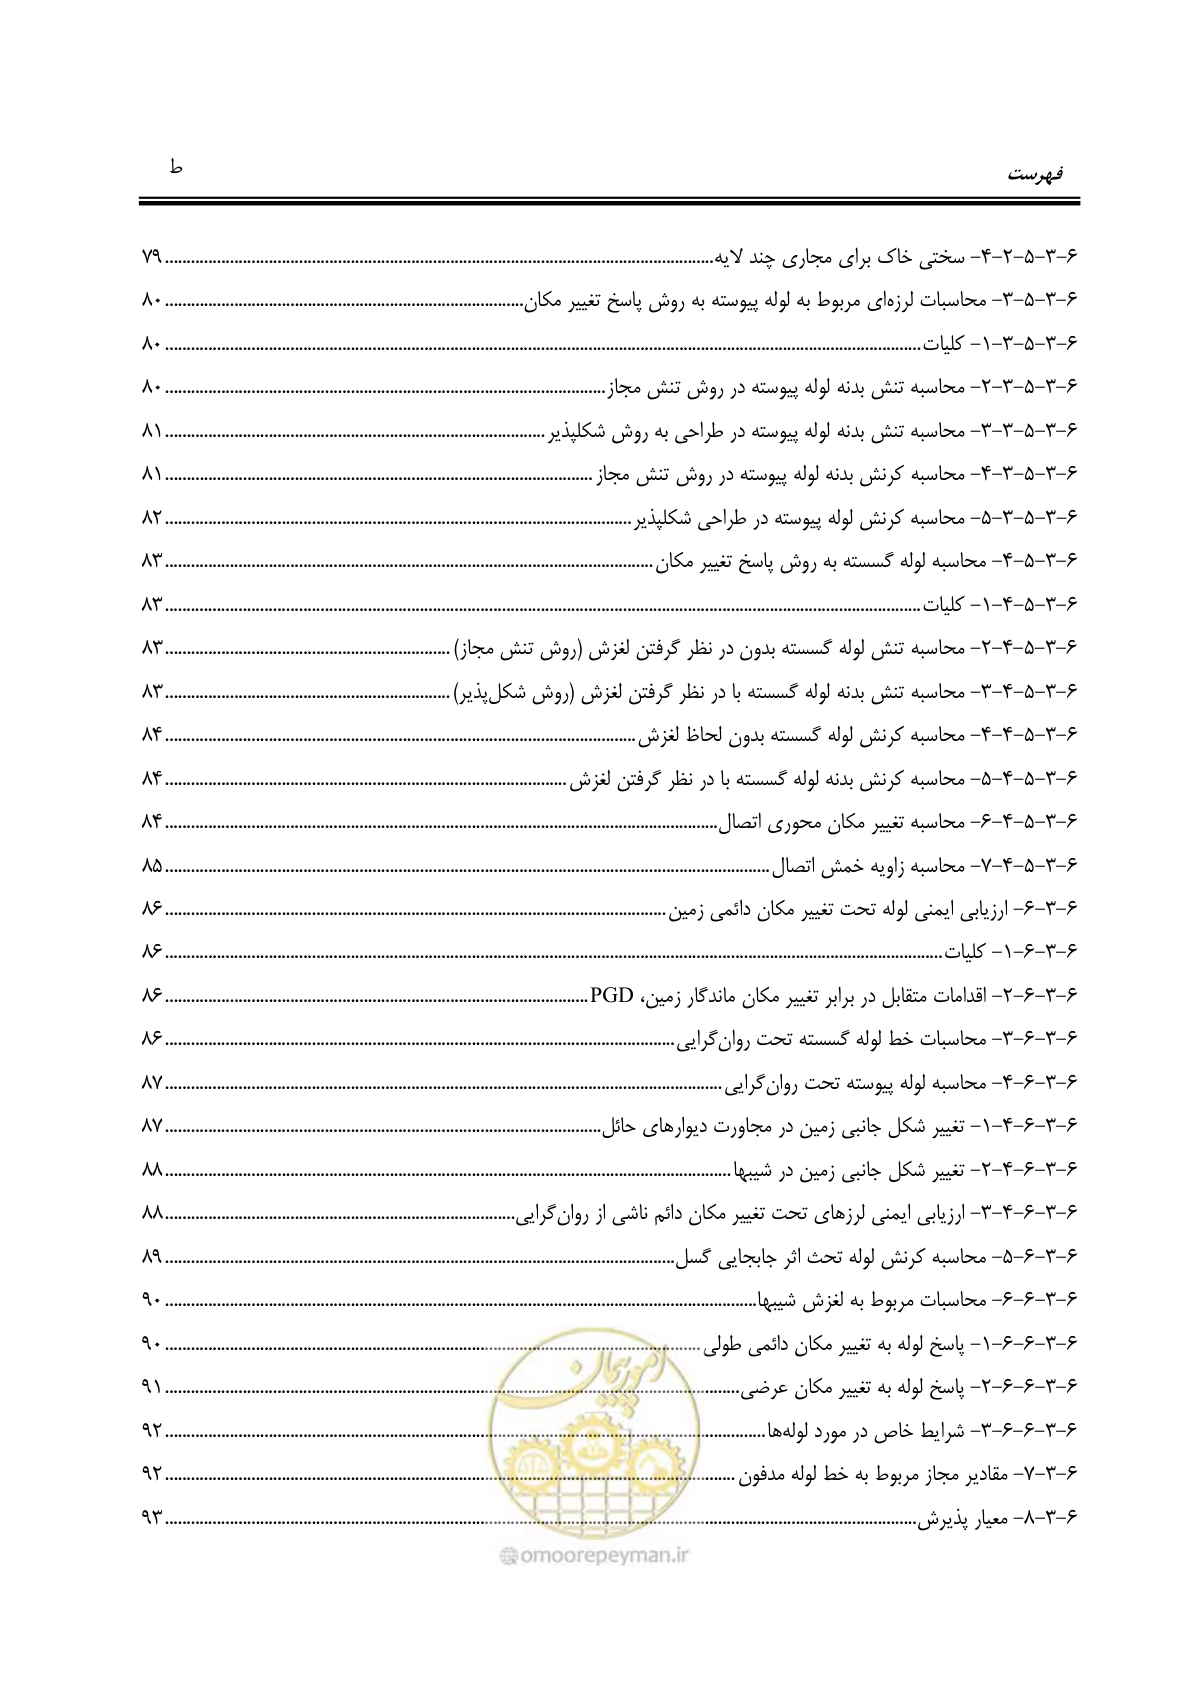 فهرست ط
۶-۳-۵-۲-۴- سختی خاک برای مجاری چند لایه ۷۹
۶-۳-۵-۳- محاسبات لرزه‌ای مربوط به لوله پیوسته به روش پاسخ تغییر مکان ۸۰
۶-۳-۵-۳-۱- کلیات ۸۰
۶-۳-۵-۳-۲- محاسبه تنش بدنه لوله پیوسته در روش تنش مجاز ۸۰
۶-۳-۵-۳-۳- محاسبه تنش بدنه لوله پیوسته در طراحی به روش شکلپذیر ۸۱
۶-۳-۵-۳-۴- محاسبه کرنش بدنه لوله پیوسته در روش تنش مجاز ۸۱
۶-۳-۵-۳-۵- محاسبه کرنش لوله پیوسته در طراحی شکلپذیر ۸۲
۶-۳-۵-۴- محاسبه لوله گسسته به روش پاسخ تغییر مکان ۸۳
۶-۳-۵-۴-۱- کلیات ۸۳
۶-۳-۵-۴-۲- محاسبه تنش لوله گسسته بدون در نظر گرفتن لغزش (روش تنش مجاز) ۸۳
۶-۳-۵-۴-۳- محاسبه تنش بدنه لوله گسسته با در نظر گرفتن لغزش (روش شکل‌پذیر) ۸۳
۶-۳-۵-۴-۴- محاسبه کرنش لوله گسسته بدون لحاظ لغزش ۸۴
۶-۳-۵-۴-۵- محاسبه کرنش بدنه لوله گسسته با در نظر گرفتن لغزش ۸۴
۶-۳-۵-۴-۶- محاسبه تغییر مکان محوری اتصال ۸۴
۶-۳-۵-۴-۷- محاسبه زاویه خمش اتصال ۸۵
۶-۳-۶- ارزیابی ایمنی لوله تحت تغییر مکان دائمی زمین ۸۶
۶-۳-۶-۱- کلیات ۸۶
۶-۳-۶-۲- اقدامات متقابل در برابر تغییر مکان ماندگار زمین، PGD ۸۶
۶-۳-۶-۳- محاسبات خط لوله گسسته تحت روان‌گرایی ۸۶
۶-۳-۶-۴- محاسبه لوله پیوسته تحت روان‌گرایی ۸۷
۶-۳-۶-۴-۱- تغییر شکل جانبی زمین در مجاورت دیوارهای حائل ۸۷
۶-۳-۶-۴-۲- تغییر شکل جانبی زمین در شیبها ۸۸
۶-۳-۶-۴-۳- ارزیابی ایمنی لرزهای تحت تغییر مکان دائم ناشی از روان‌گرایی ۸۸
۶-۳-۶-۵- محاسبه کرنش لوله تحث اثر جابجایی گسل ۸۹
۶-۳-۶-۶- محاسبات مربوط به لغزش شیبها ۹۰
۶-۳-۶-۶-۱- پاسخ لوله به تغییر مکان دائمی طولی ۹۰
۶-۳-۶-۶-۲- پاسخ لوله به تغییر مکان عرضی ۹۱
۶-۳-۶-۶-۳- شرایط خاص در مورد لوله‌ها ۹۲
۶-۳-۷- مقادیر مجاز مربوط به خط لوله مدفون ۹۲
۶-۳-۸- معیار پذیرش ۹۳
امور پیمان
@omoorepeyman.ir